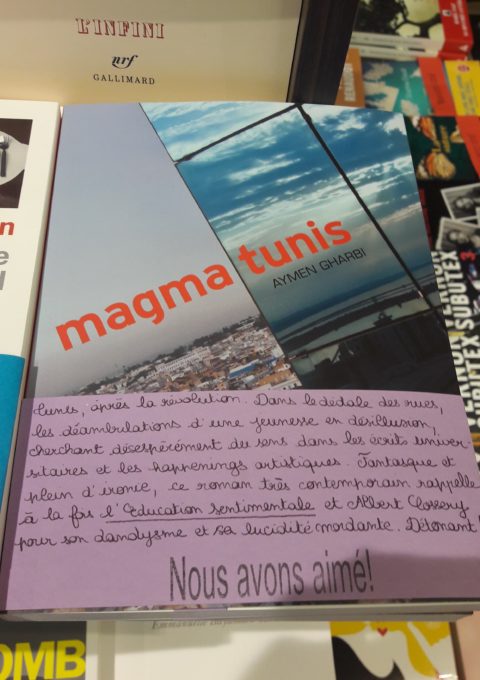 L'INFINI
nrf
GALLIMARD
magma tunis
AYMEN GHARBI
Tunis, après la révolution. Dans le dédale des rues,
les déambulations d'une jeunesse en désillusion,
cherchant désespérément du sens dans les écrits univer-
sitaires et les happenings artistiques. Fantasque et
plein d'ironie, ce roman très contemporain rappelle
à la fois l'Education sentimentale et Albert Cossery
pour son dandysme et sa lucidité mordante. Détonant!
Nous avons aimé!
SUBUTEX 3
OMB